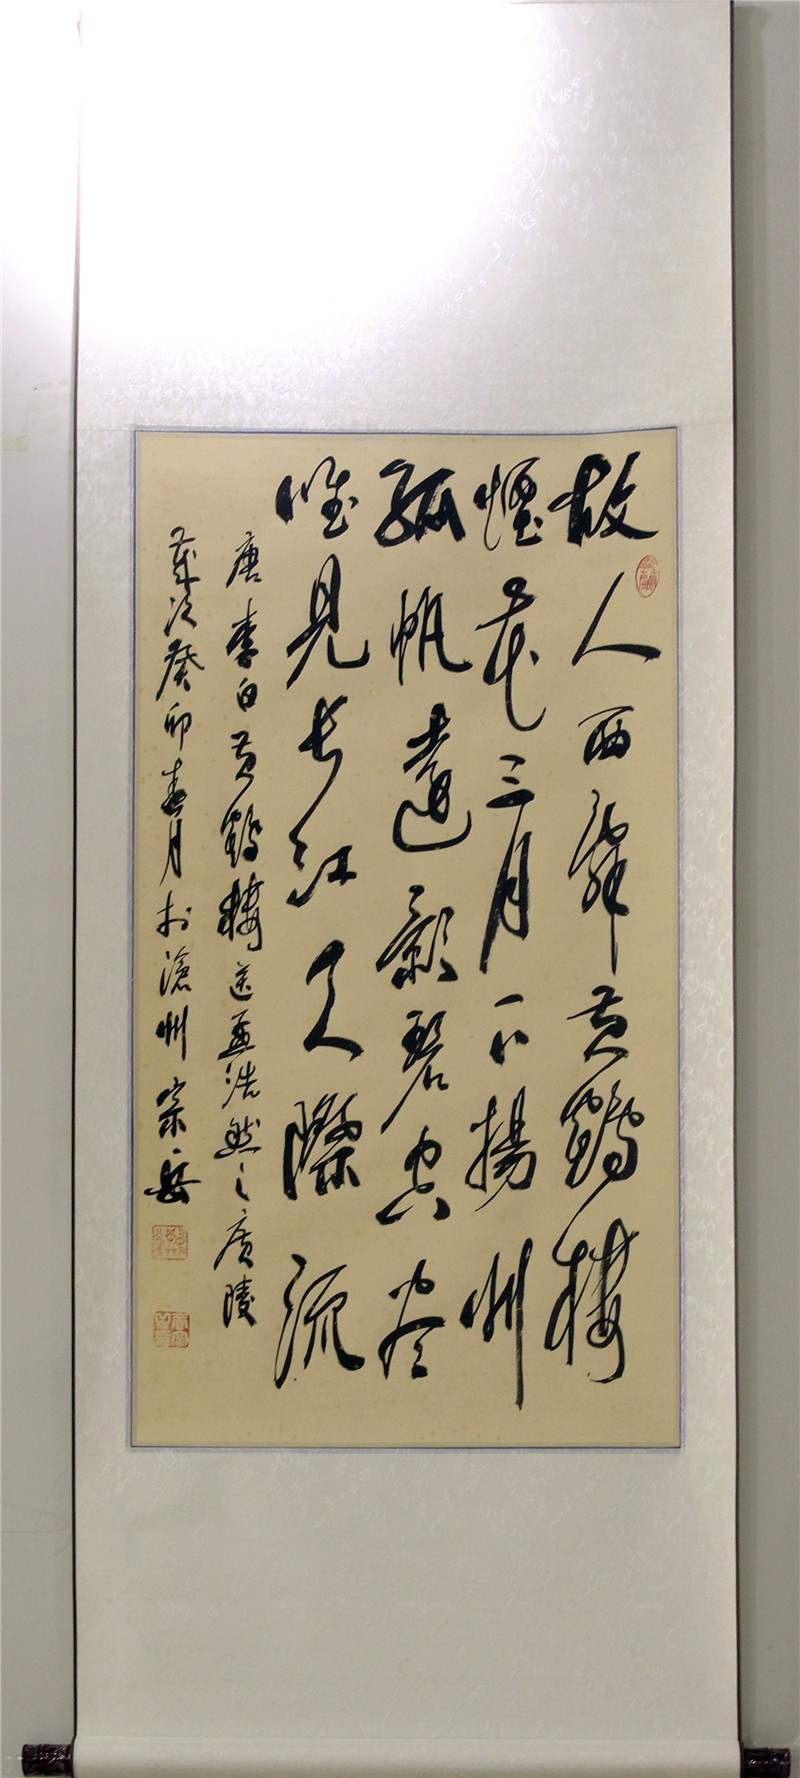 故人西辞黄鹤楼
烟花三月下扬州
孤帆远影碧空尽
唯见长江天际流
唐李白黄鹤楼送孟浩然之广陵
岁次癸卯春月于沧州宗岳